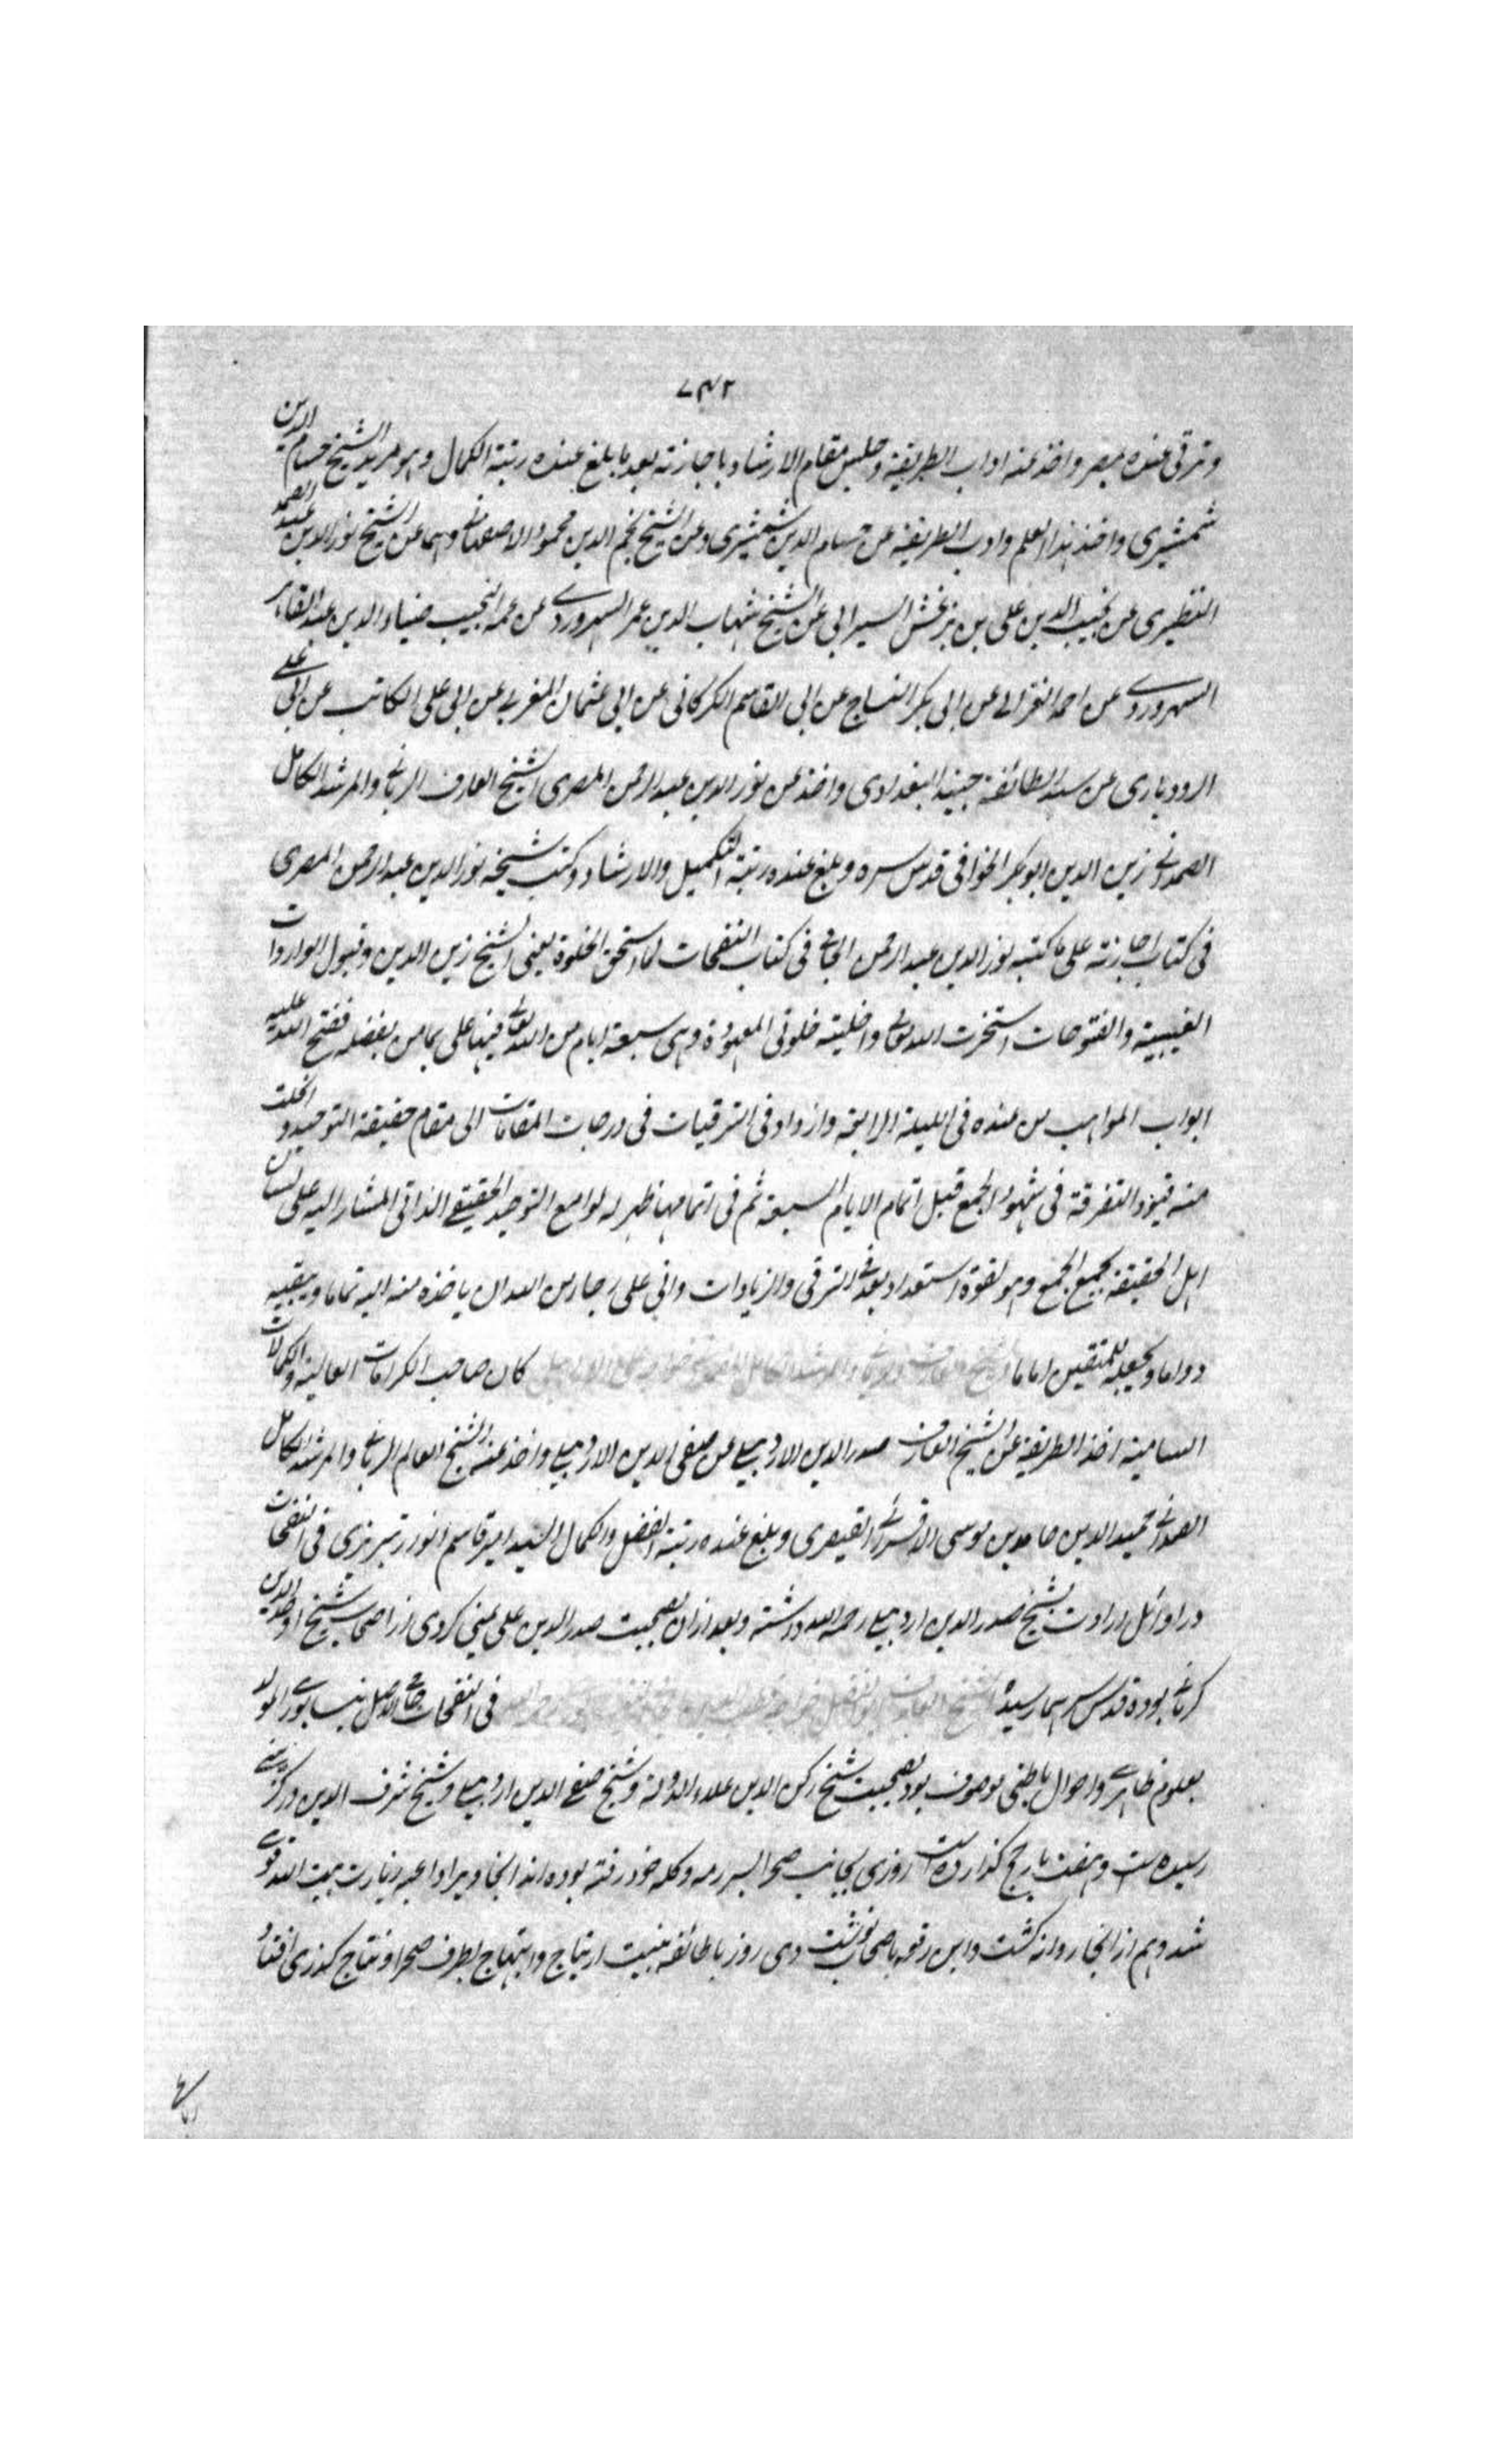 ۷۴۲
وترقی عنده بمصر واخذ عنه اداب الطریقه وجلس مقام الارشاد باجازته بعد ما بلغ عنده رتبة الکمال وهو مرید الشیخ حسام الدین
شمشیری واخذ هذا العلم وادب الطریقه عن حسام الدین شمشیری وعن الشیخ نجم الدین محمود الاصفهانی وهما عن الشیخ نور الدین عبد الصمد
النطیری عن نجیب الدین علی بن بزغش السیرابی عن الشیخ شهاب الدین عمر السهروردے عن عمه النجیب ضیاء الدین عبد القاهر
السهروردے عن احمد الغزالے عن ابی بکر النساج عن ابی القاسم الکرکانی عن ابی عثمان المغربے عن ابی علی الکاتب عن ابی علے
الرودباری عن سید الطائفة جنید البغدادی واخذ عن نور الدین عبد الرحمن المصری الشیخ العارف الربانے والمرشد الکامل
الصمدانے زین الدین ابو بکر الخوافی قدس سره وبلغ عنده رتبة التکمیل والارشاد وکتب شیخه نور الدین عبد الرحمن المصری
فی کتاب اجازته علی ما کتبه نور الدین عبد الرحمن الجامی فی کتاب النفحات لما استحق الخلوة یعنی الشیخ زین الدین وقبول الواردات
الغیبیة والفتوحات استخرت الله تعالی واخلیته خلوتی المعهودة وهی سبعة ایام من الله تعالی فیها علی بما من بفضله ففتح الله علیه
ابواب المواهب من عنده فی اللیلة الرابعة وازداد فی الترقیات فی درجات المقامات الی مقام حقیقة التوحید وانحلت
منه قیود التفرقة فی شهود الجمع قبل اتمام الایام السبعة ثم فی اتمامها ظهر له لوامع التوحید الحقیقے الذاتی المشار الیه علی لسان
اهل الحقیقة بجمع الجمع وهو لقوة استعداده بعد فی الترقی والزیادات وانی علی رجاء من الله ان یاخذه منه الیه تماما ویبقیه
دواما ویجعله للمتقین اماما کان صاحب الکرامات العالیة والکمالات
السامیة اخذ الطریقة عن الشیخ العارف صدر الدین الاردبیلے عن صفی الدین الاردبیلے واخذ عنه الشیخ العالم الربانے والمرشد الکامل
الصمدانے حمید الدین حامد بن موسی الاقسرائے القیصری وبلغ عنده رتبة الفضل والکمال السید امیر قاسم انوار تبریزی فی النفحات
در اوائل ارادت بشیخ صدر الدین اردبیلے رحمه الله داشته وبعد ازان بصحبت صدر الدین علی یمنی کردی از اصحاب شیخ اوحد الدین
کرمانے بوده قدس سرهما رسیده فی النفحات جامی الاصل نیسابورے المولد
بعلوم ظاهرے واحوال باطنی موصوف بود بصحبت شیخ رکن الدین علاء الدوله وشیخ صفے الدین اردبیلے وشیخ شرف الدین درکزینے
رسیده ست وهفت بار حج گذارده است روزی بجانب صحرا بسر رمه وکله خود رفته بوده اند انجا ویرا داعیه زیارت بیت الله قوے
شد وهم از انجا روانه گشت واین رقعه باصحاب نوشت دی روز با طائفه بنیت ارتیاح وابتهاج بطرف صحرا ونتاج گذری افتاد